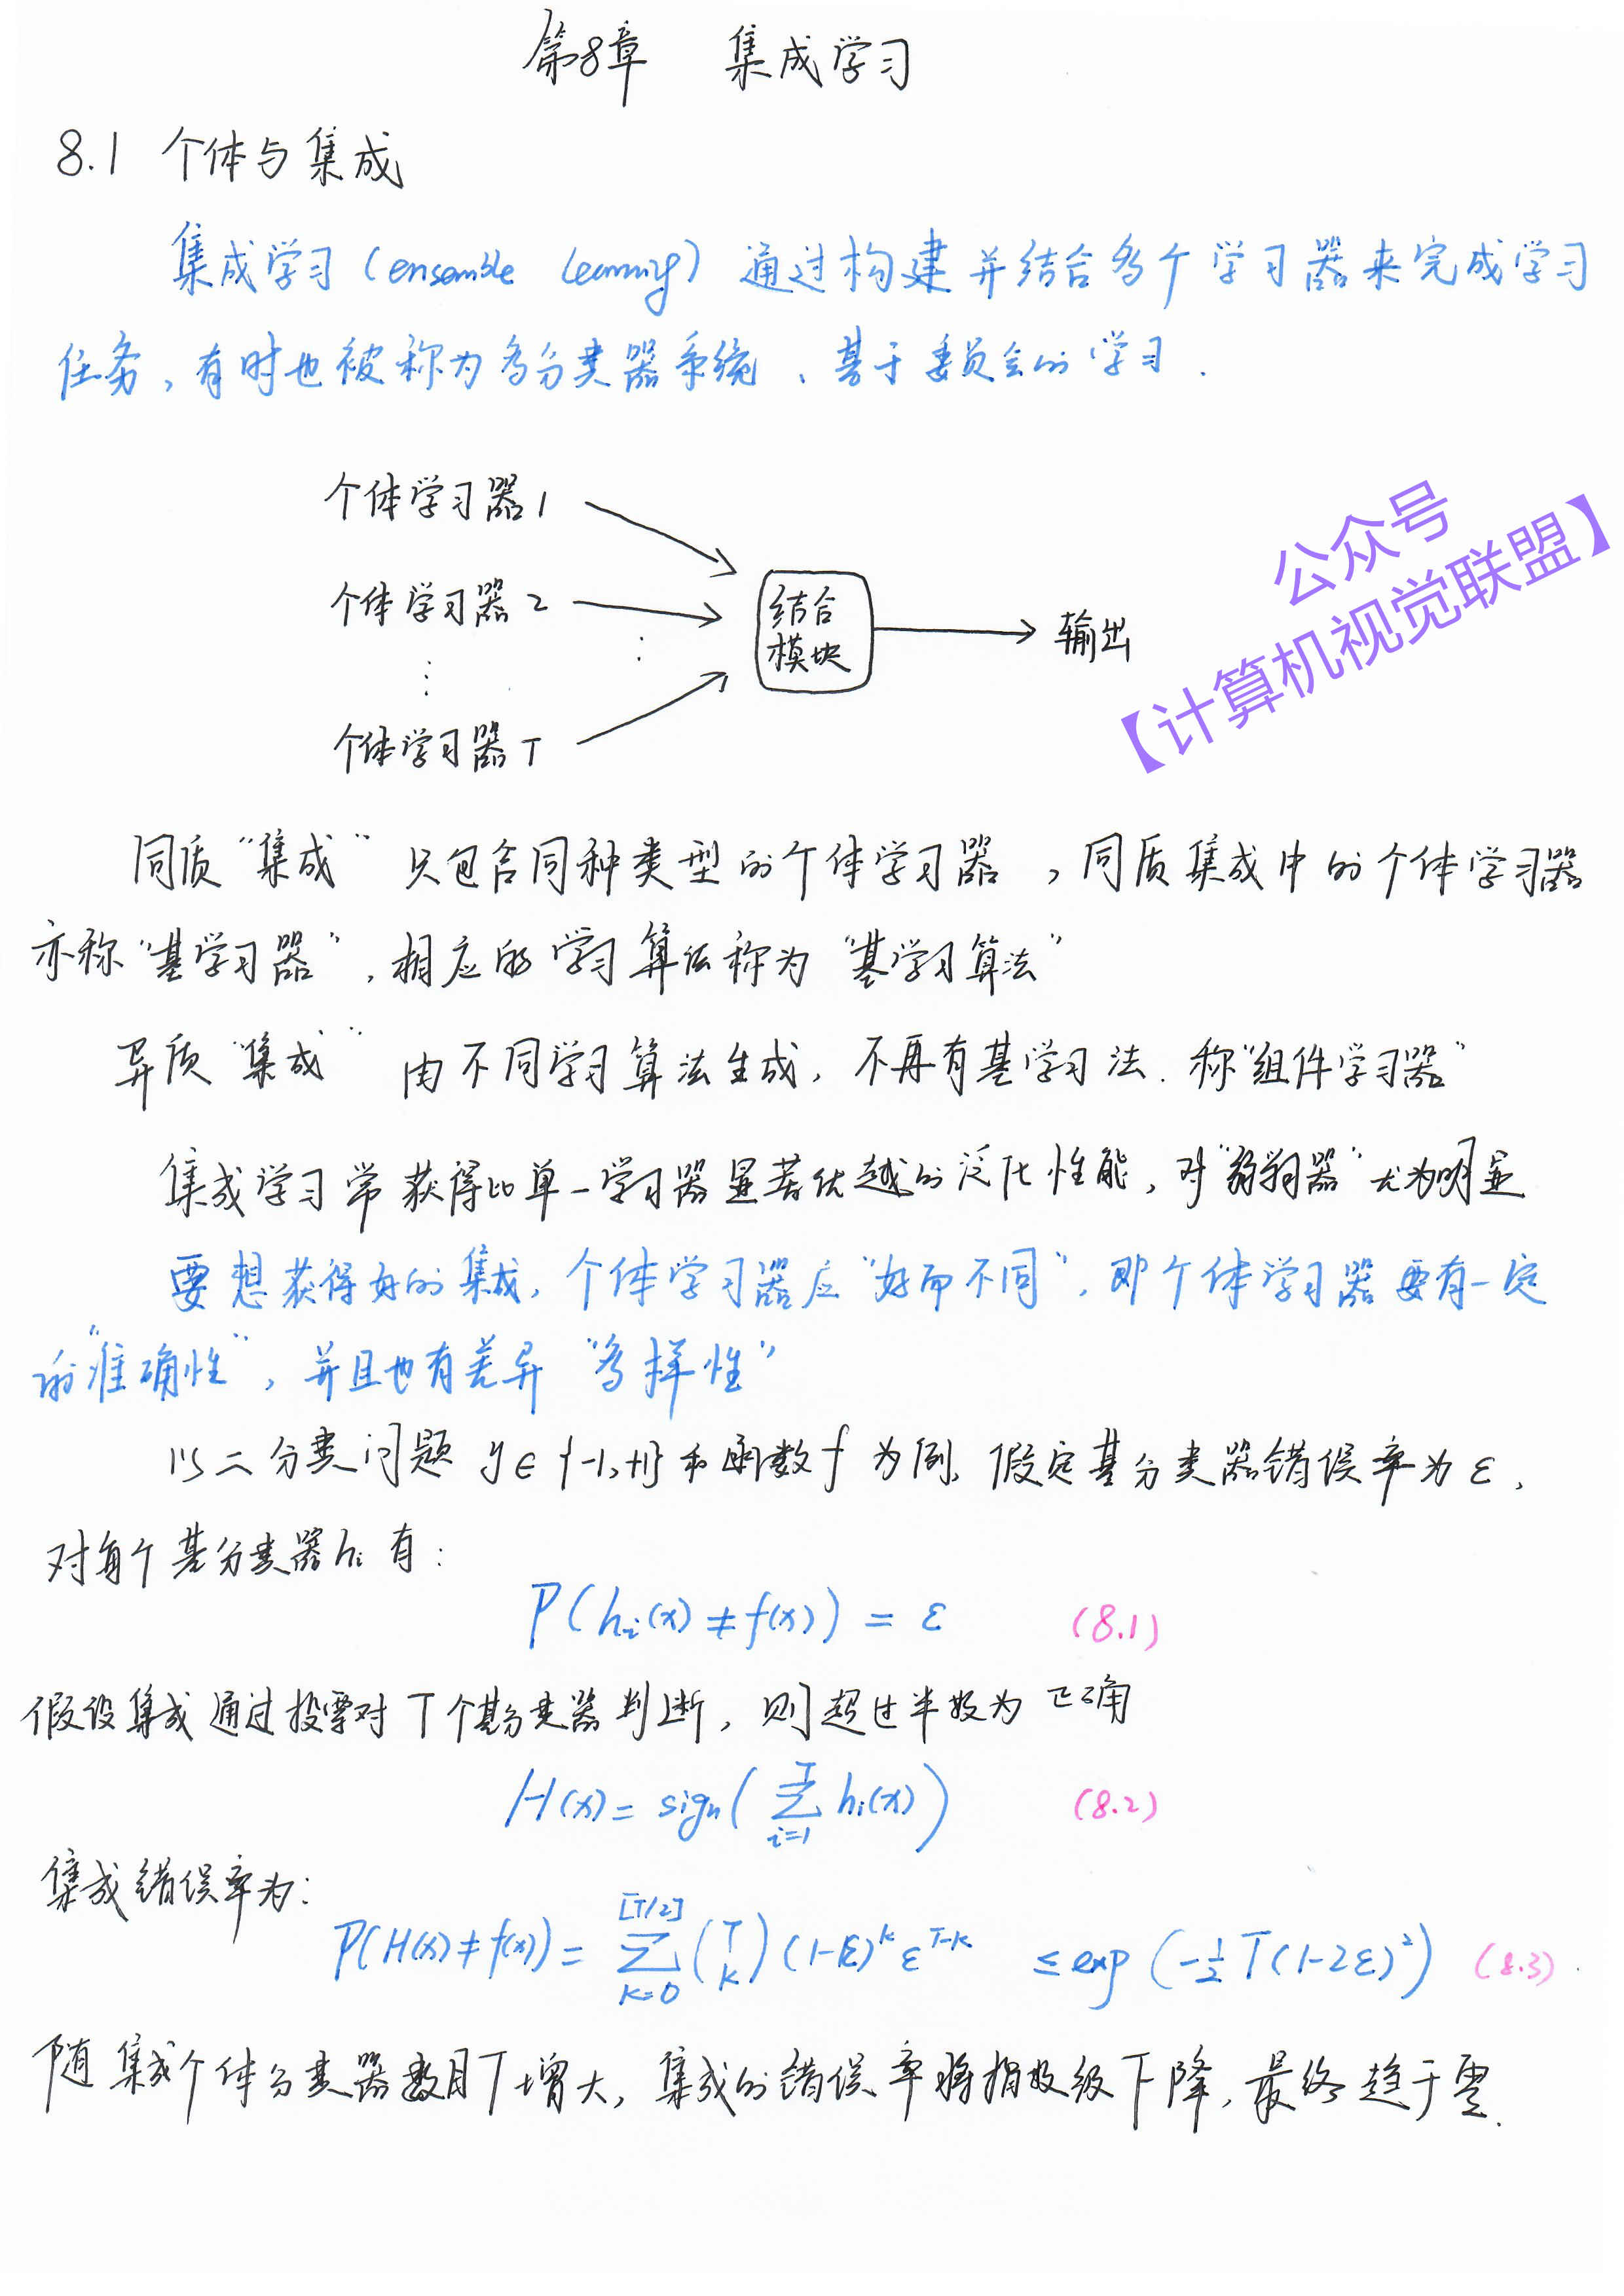 第8章 集成学习
8.1 个体与集成
集成学习(ensemble learning) 通过构建并结合多个学习器来完成学习
任务,有时也被称为多分类器系统、基于委员会的学习.
个体学习器1
个体学习器2
结合
模块
输出
⋮
⋮
个体学习器T
公众号
【计算机视觉联盟】
同质“集成” 只包含同种类型的个体学习器,同质集成中的个体学习器
亦称“基学习器”,相应的学习算法称为“基学习算法”
异质“集成” 由不同学习算法生成,不再有基学习法.称“组件学习器”
集成学习常获得比单一学习器显著优越的泛化性能,对“弱学习器”尤为明显
要想获得好的集成,个体学习器应“好而不同”,即个体学习器要有一定
的“准确性”,并且也有差异“多样性”
以二分类问题 y∈{-1,+1}和函数f为例,假定基分类器错误率为ε,
对每个基分类器hi有:
P(hi(x)≠f(x)) = ε (8.1)
假设集成通过投票对T个基分类器判断,则超过半数为正确
H(x) = sign(∑_{i=1}^{T} hi(x)) (8.2)
集成错误率为:
P(H(x)≠f(x)) = ∑_{k=0}^{[T/2]} (T k) (1-ε)^k ε^{T-k} ≤ exp(-1/2 T(1-2ε)^2) (8.3)
随集成个体分类器数目T增大,集成的错误率将指数级下降,最终趋于零.